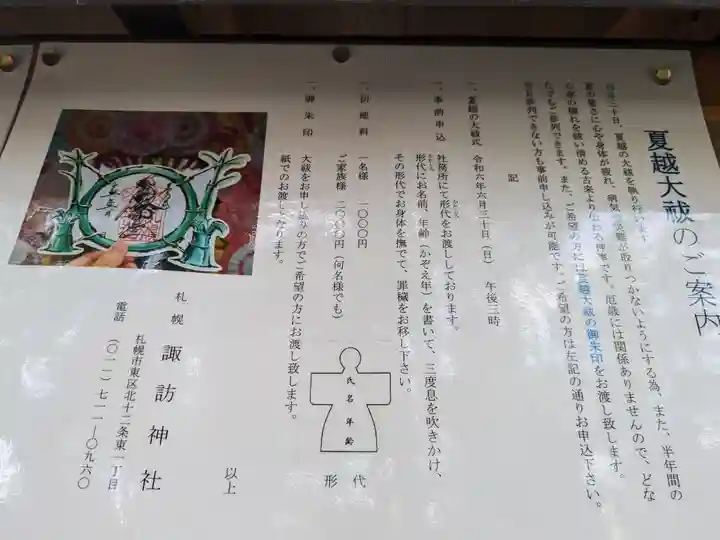 夏越大祓のご案内
夏越の大祓を執り行います
夏の暑さに心や身体が疲れ、病気や災難が取りつかないようにする為、また、半年間の
心身の穢れを祓い清める古来より伝わる神事です。厄歳には関係ありませんので、どな
たでもご参列できます。また、ご希望の方には夏越大祓の御朱印をお渡し致します。
当日参列できない方も事前申し込みが可能です。ご希望の方は左記の通りお申込下さい。
記
一、夏越の大祓式 令和六年六月三十日(日) 午後三時
一、事前申込 社務所にて形代をお渡ししております。
かたしろ
形代にお名前、年齢(かぞえ年)を書いて、三度息を吹きかけ、
かたしろ
その形代でお身体を撫でて、罪穢をお移し下さい。
一、初穂料 一名様 一〇〇〇円
ご家族様 二〇〇〇円(何名様でも)
一、御朱印 大祓をお申し込みの方でご希望の方にお渡し致します。
紙でのお渡しとなります。
氏名年齢
形代
以上
札幌 諏訪神社
札幌市東区北十二条東一丁目
電話 (〇一一)七一一―〇九六〇